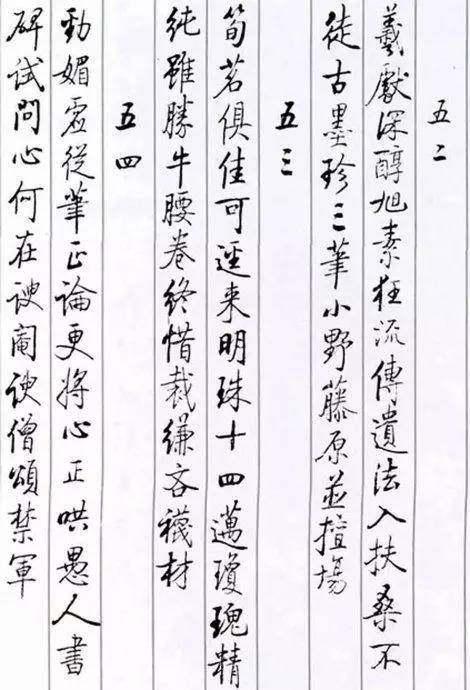 五二
羲獻深醇旭素狂流傳遺法入扶桑不
徒古墨珍三筆小野藤原並擅場
五三
筍茗俱佳可逕来明珠十四邁瓊瑰精
純雖勝牛腰卷終惜裁縑吝襪材
五四
勁媚虛從筆正論更將心正哄愚人書
碑試問心何在諛閹諛僧頌禁軍